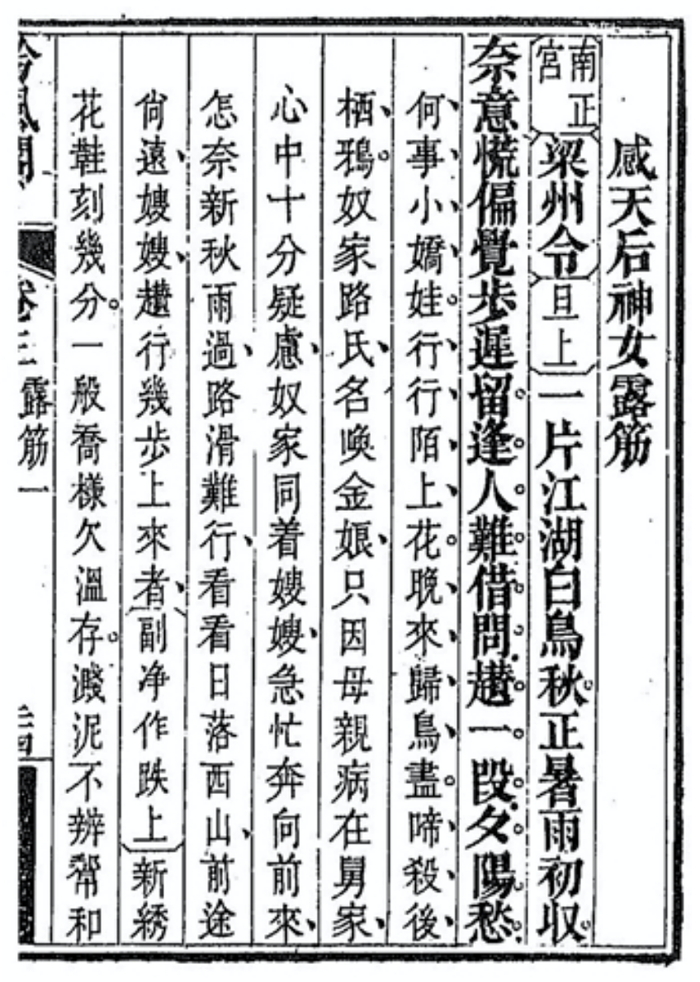 感天后神女露筋
南正宮〔梁州令〕〔旦上〕一片江湖白鳥秋。正暑雨初収。
奈意慌偏覺步遲留。逢人難借問。趲一段夕陽愁。
何事小嬌娃、行行陌上花。晚來歸鳥盡。啼殺後
栖鴉。奴家路氏名喚金娘、只因母親病在舅家、
心中十分疑慮、奴家同着嫂嫂、急忙奔向前來、
怎奈新秋雨過、路滑難行、看看日落西山、前途
尙遠、嫂嫂、趲行幾步上來者、〔副净作跌上〕新綉
花鞵刻幾分。一般喬樣欠溫存。濺泥不辨幫和
露筋一